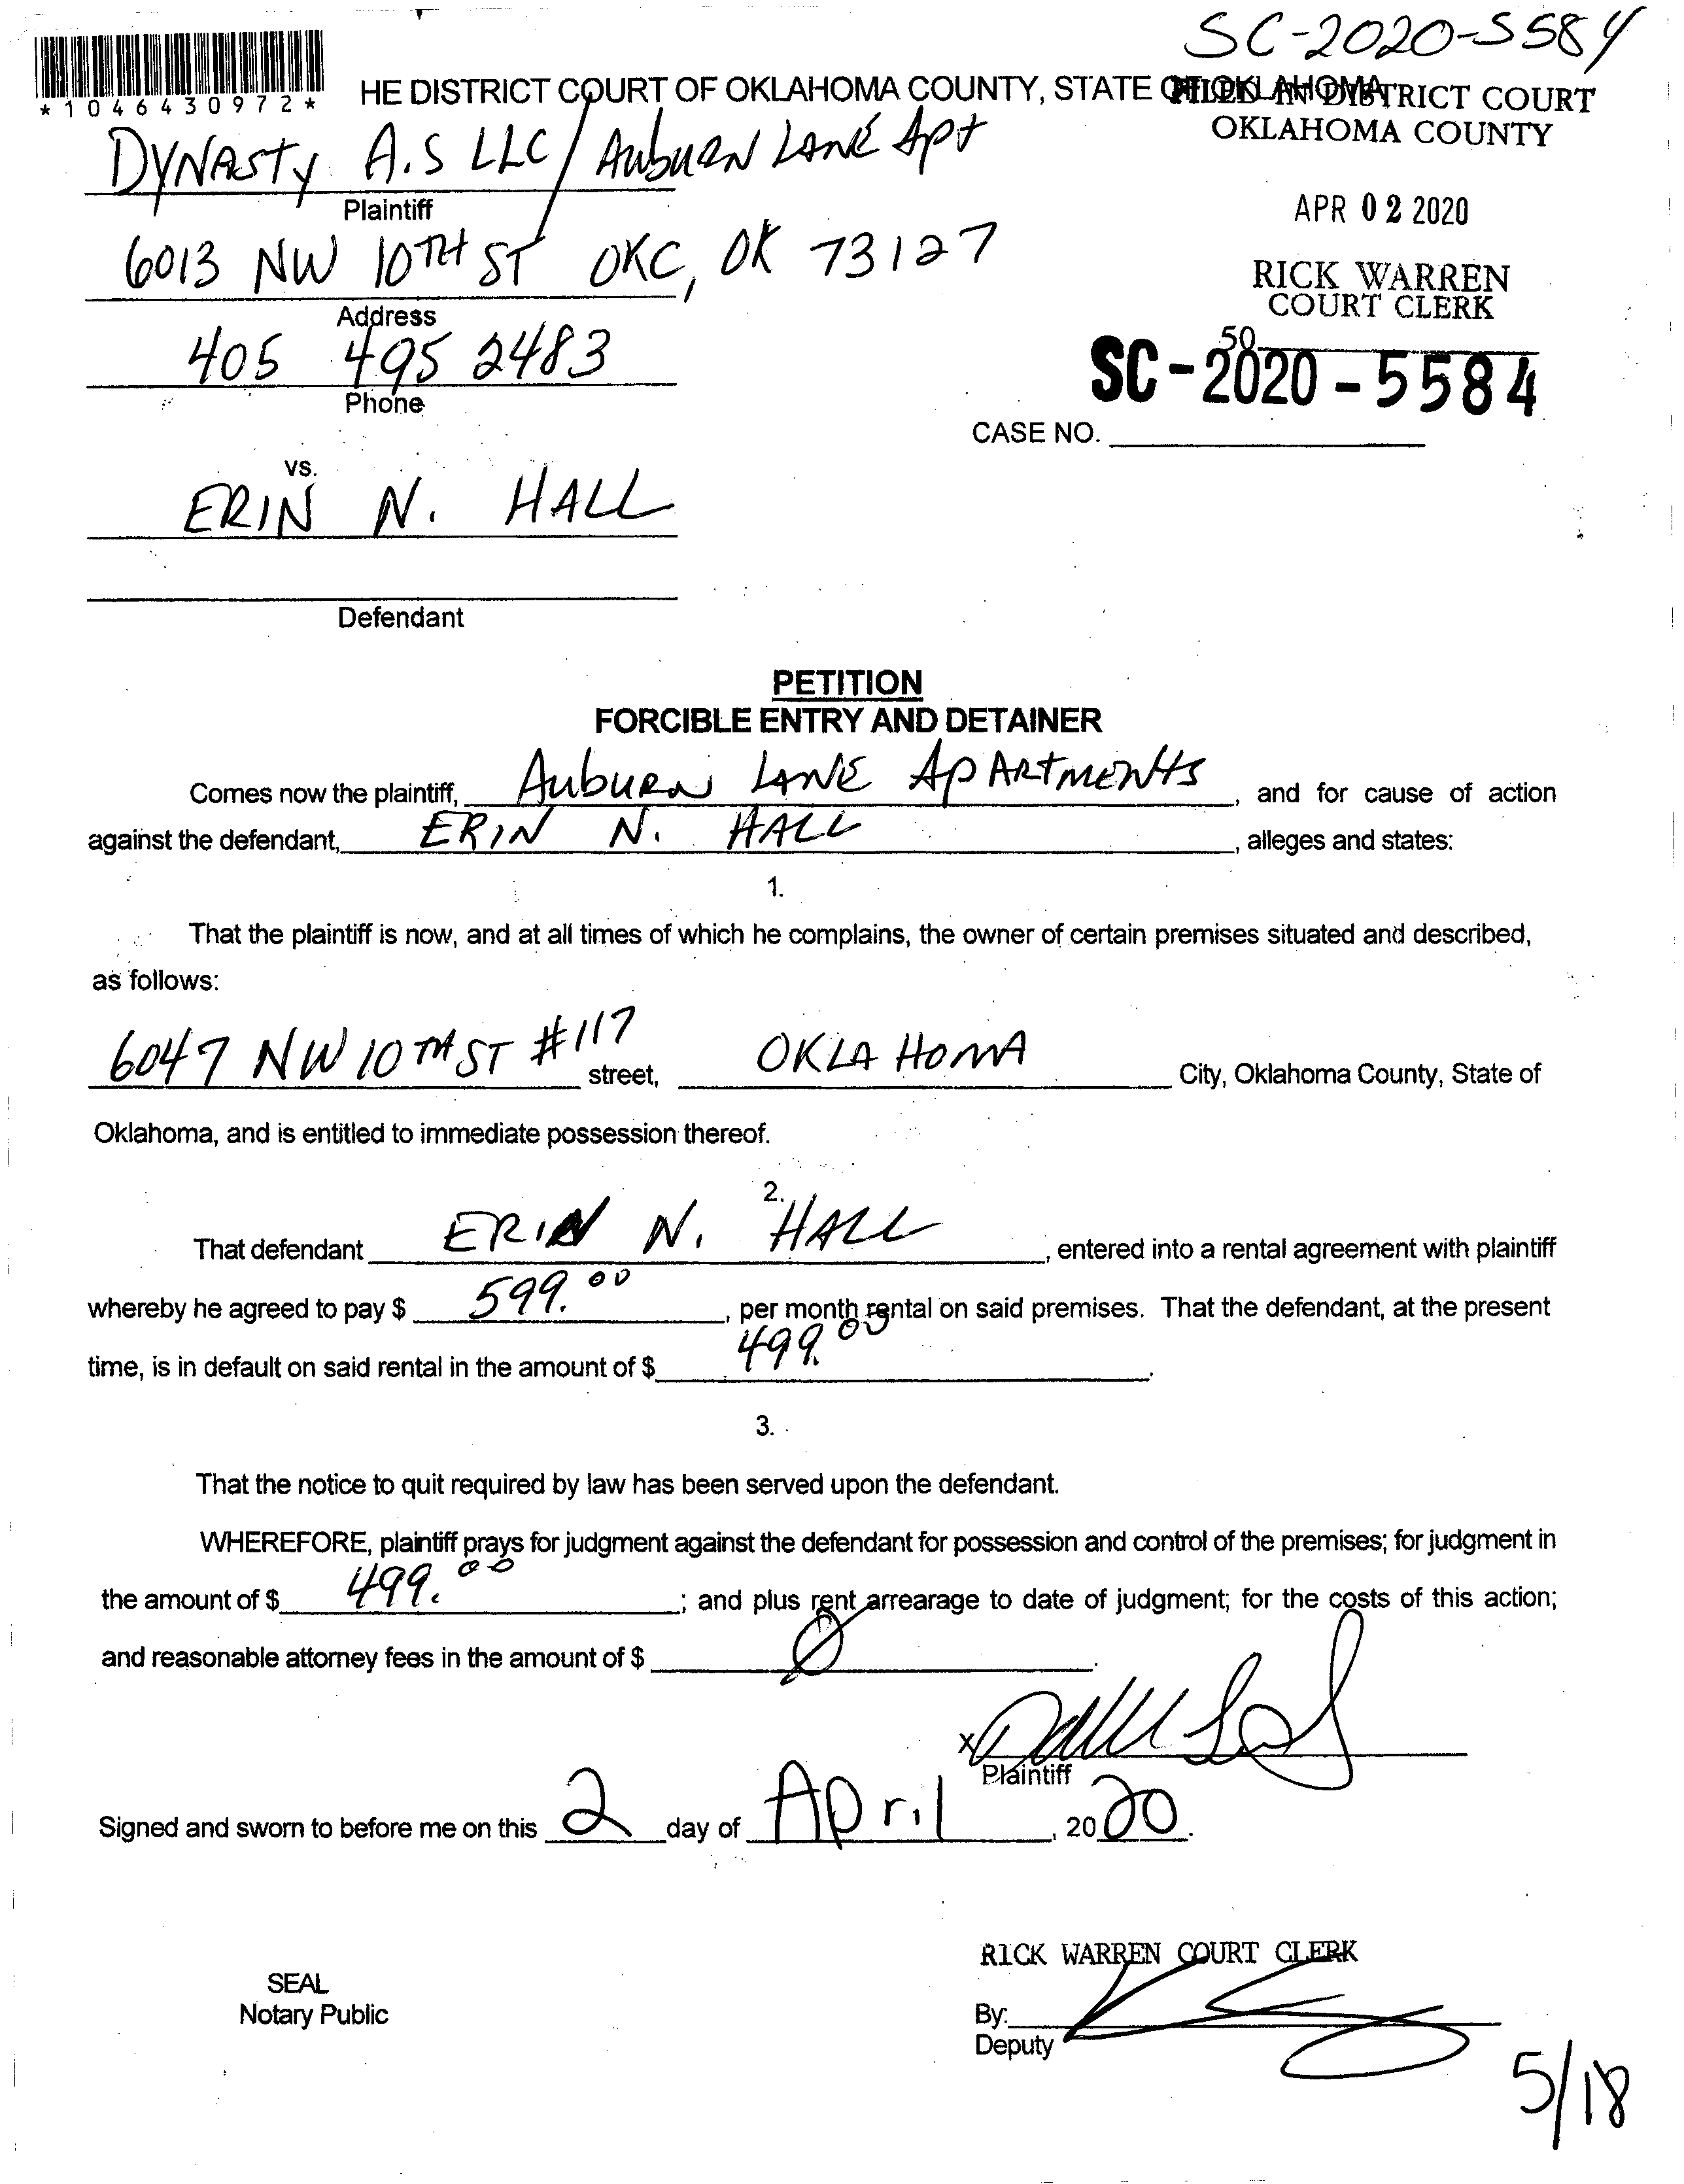 SC-2020-5584
*1046430972*
HE DISTRICT COURT OF OKLAHOMA COUNTY, STATE OF OKLAHOMA
FILED IN DISTRICT COURT
OKLAHOMA COUNTY
DYNASTY A.S LLC / AUBURN LANE Apt
Plaintiff
APR 02 2020
6013 NW 10TH ST OKC, OK 73127
Address
RICK WARREN
COURT CLERK
405 495 2483
Phone
50
SC-2020-5584
CASE NO.
vs.
ERIN N. HALL
Defendant
PETITION
FORCIBLE ENTRY AND DETAINER
Comes now the plaintiff, AUBURN LANE APARTMENTS, and for cause of action
against the defendant, ERIN N. HALL, alleges and states:
1.
That the plaintiff is now, and at all times of which he complains, the owner of certain premises situated and described,
as follows:
6047 NW 10TH ST #117 street, OKLAHOMA City, Oklahoma County, State of
Oklahoma, and is entitled to immediate possession thereof.
2.
That defendant ERIN N. HALL, entered into a rental agreement with plaintiff
whereby he agreed to pay $ 599.00, per month rental on said premises. That the defendant, at the present
time, is in default on said rental in the amount of $ 499.00.
3.
That the notice to quit required by law has been served upon the defendant.
WHEREFORE, plaintiff prays for judgment against the defendant for possession and control of the premises; for judgment in
the amount of $ 499.00; and plus rent arrearage to date of judgment; for the costs of this action;
and reasonable attorney fees in the amount of $ 0.
X
Plaintiff
Signed and sworn to before me on this 2 day of April, 2020.
RICK WARREN COURT CLERK
SEAL
Notary Public
By:
Deputy
5/18